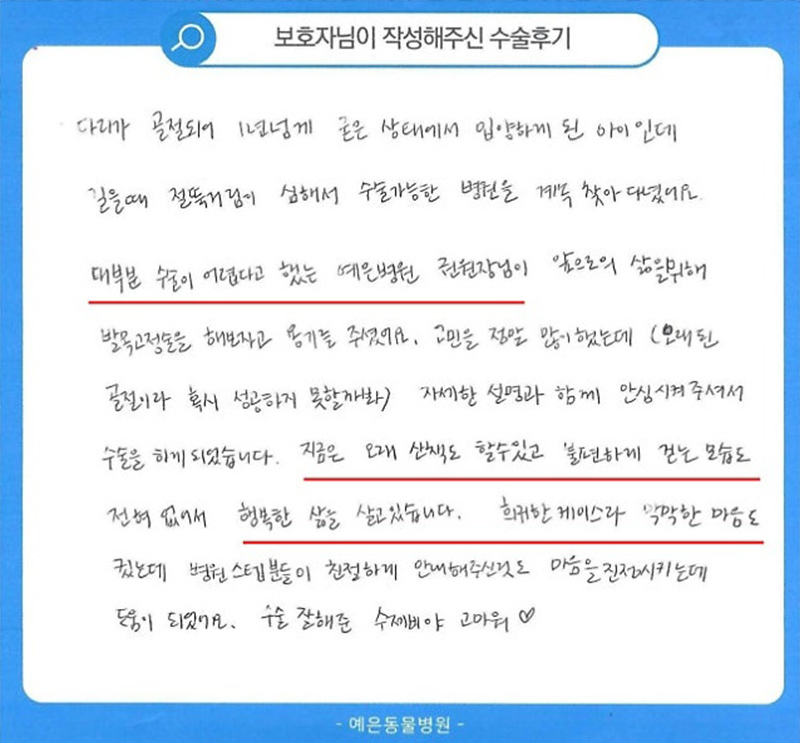 보호자님이 작성해주신 수술후기
다리가 골절되어 1년넘게 굳은 상태에서 입양하게 된 아이인데
걸을때 절뚝거림이 심해서 수술가능한 병원을 계속 찾아다녔어요.
대부분 수술이 어렵다고 했는데 예은병원 권원장님이 앞으로의 삶을위해
발목고정술을 해보자고 용기를 주셨어요. 고민을 정말 많이했는데 (오래된
골절이라 혹시 성공하지 못할까봐) 자세한 설명과 함께 안심시켜주셔서
수술을 하게되었습니다. 지금은 오래 산책도 할수있고 불편하게 걷는 모습도
전혀 없어서 행복한 삶을 살고있습니다. 희귀한케이스라 막막한 마음도
컸는데 병원스텝분들이 친절하게 안내해주신것도 마음을진정시키는데
도움이 되었어요. 수술 잘해준 수제비야 고마워 ♡
- 예은동물병원 -